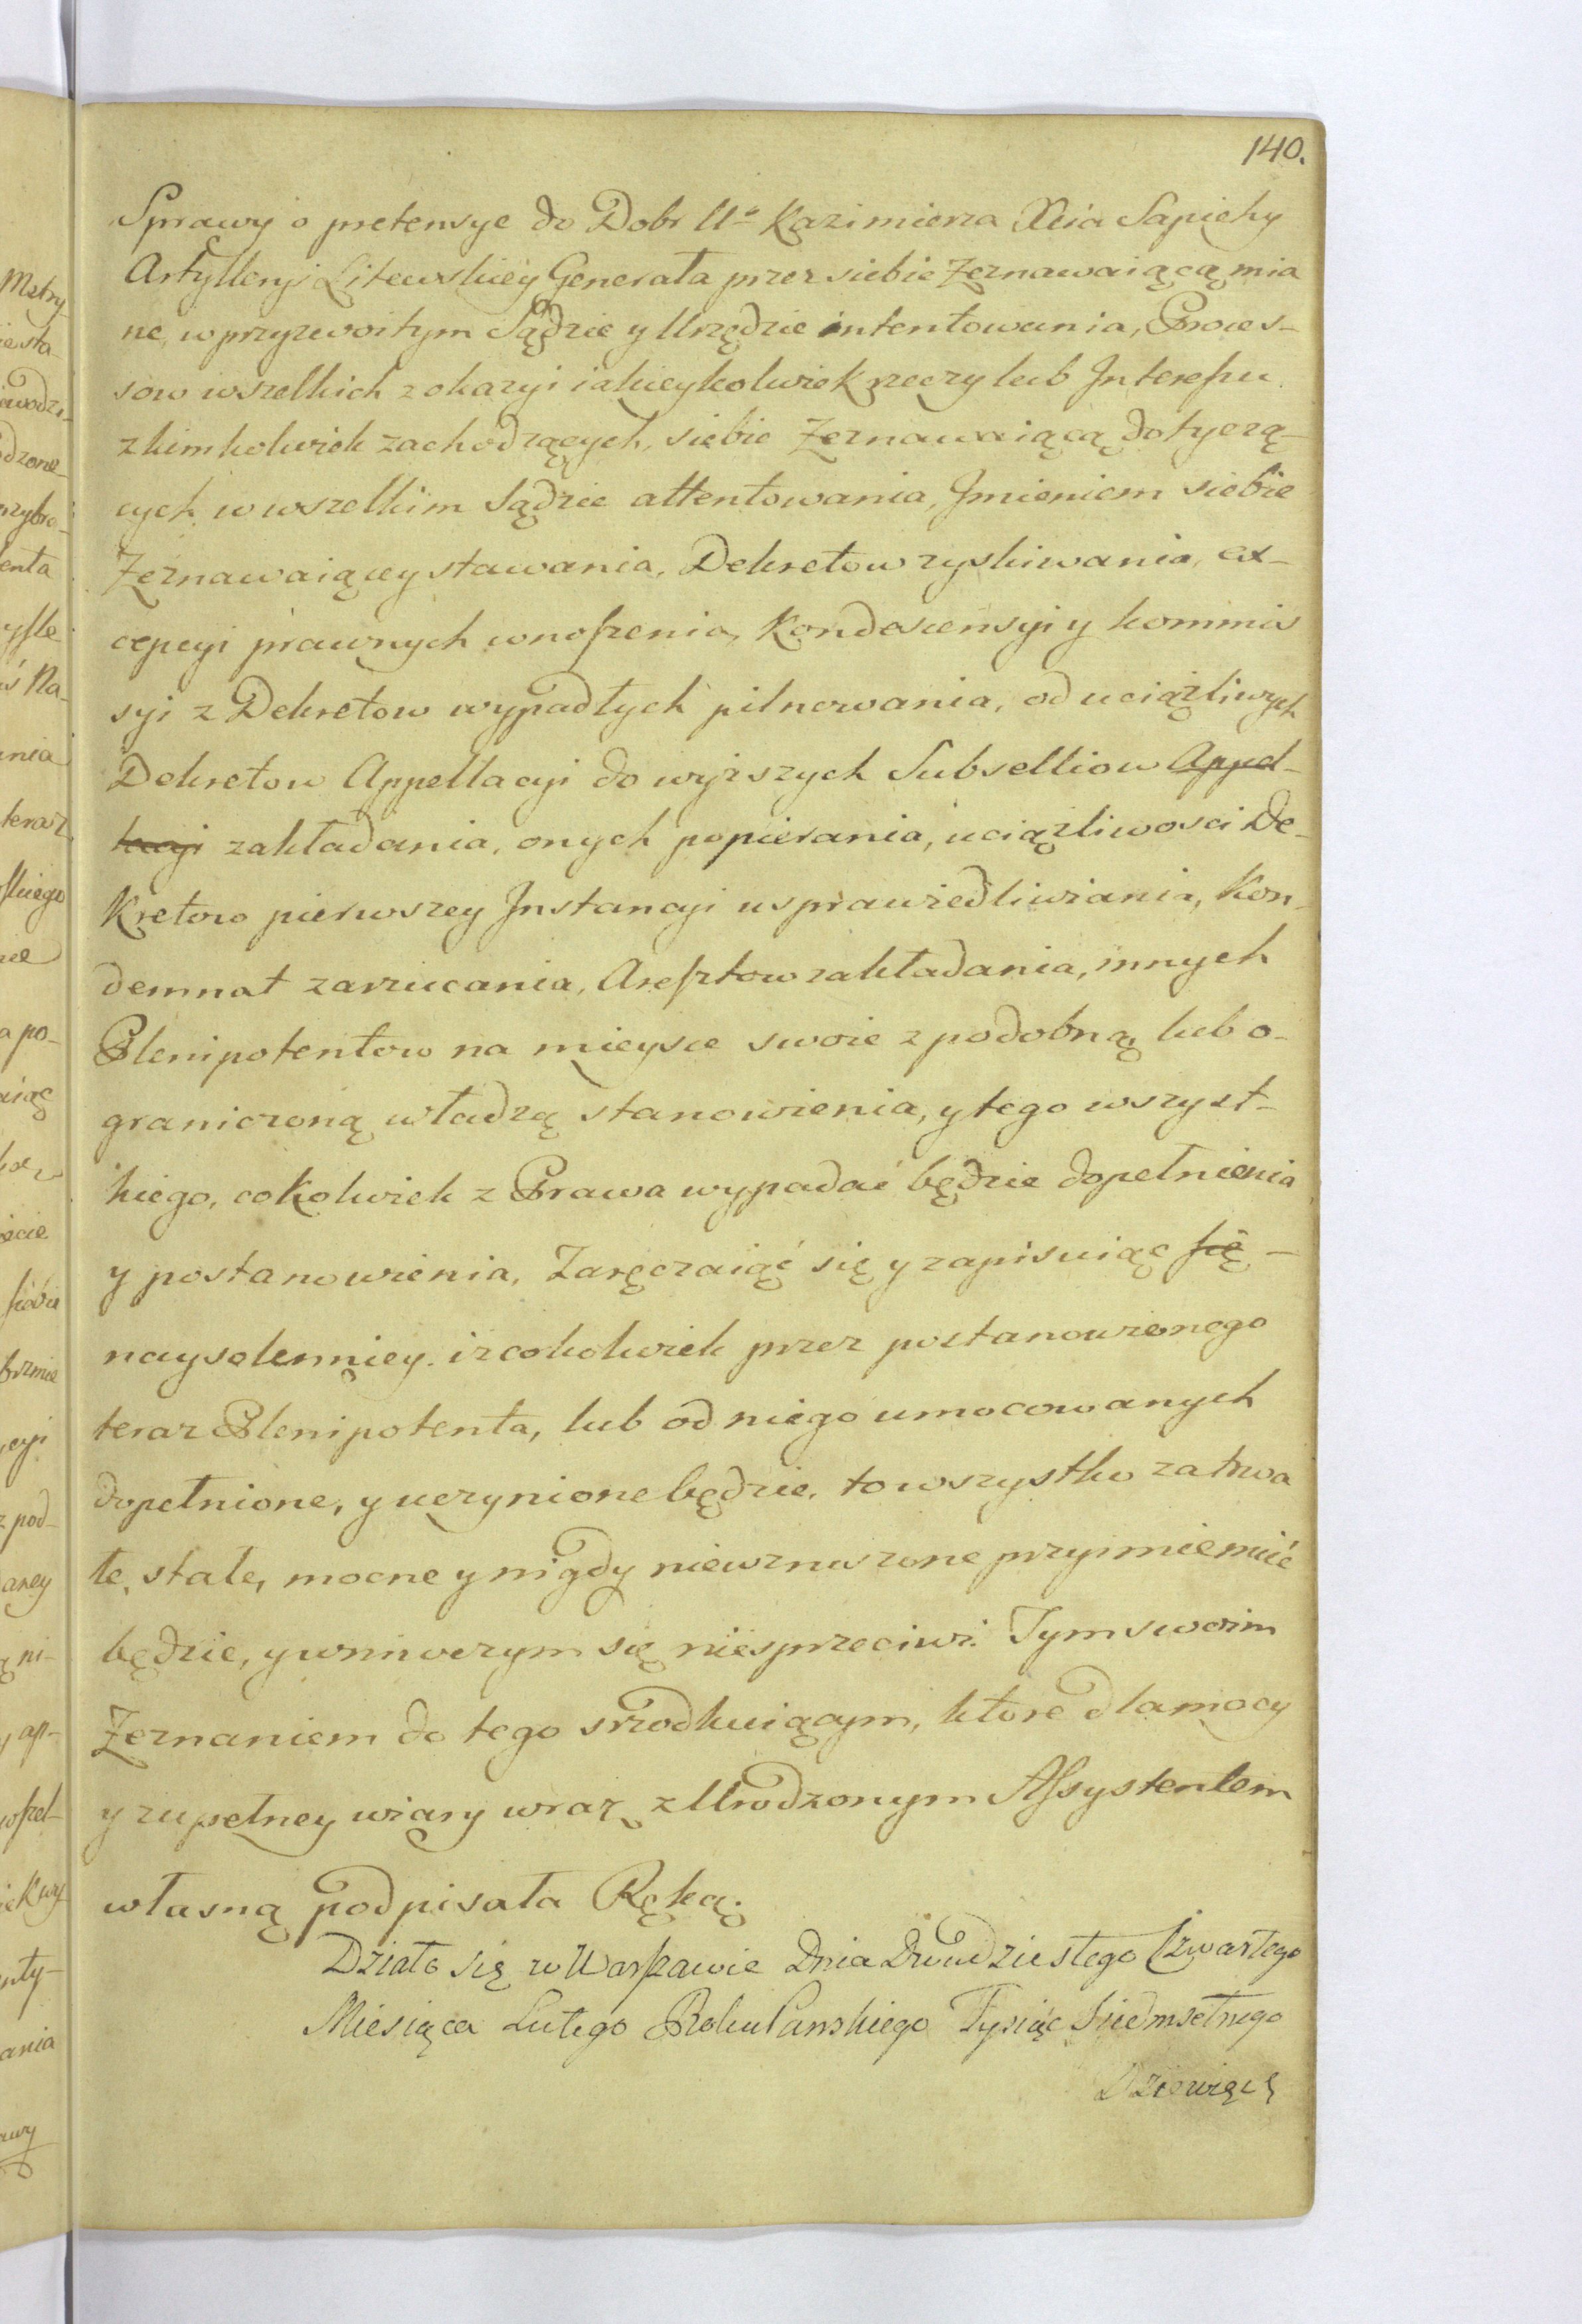 140.
Sprawy o pretensye do Dobr Uo Kazimierza Xcia Sapiehy
Artylleryi Litewskiey Generała przez siebie Zeznawaiącą mia
ne, w przyzwoitym Sądzie y Urzędzie intentowania, Proces-
sow wszelkich z okazyi iakieykolwiek rzeczy lub Interessu
z kimkolwiek zachodzących, siebie Zeznawaiącą dotyczą-
cych w wszelkim Sądzie attentowania, Jmieniem siebie
Zeznawaiącey stawania, Dekretow zyskiwania, ex-
cepcyi prawnych wnoszenia, Kondescensyi y kommis
syi z Dekretow wypadłych pilnowania, od uciążliwych
Dekretow Appellacyi do wyższych Subselliow Appel-
lacyi zakładania, onych popierania, uciążliwosci De-
Kretow pierwszey Jnstancyi usprawiedliwiania, Kon-
demnat zarzucania, Aresztow zakładania, innych
Plenipotentow na mieysce swoie z podobną, lub o-
graniczoną władzą stanowienia, y tego wszyst-
kiego, coKolwiek z Prawa wypadać będzie dopełnienia
y postanowienia, Zaręczaiąć się y zapisuiąc się -
naysolenniey. iż cokolwiek przez postanowionego
teraz Plenipotenta, lub od niego umocowanych
dopełnione, y uczynione będzie, to wszystko za trwa
łe, stałe, mocne y nigdy niewzruszone przyimie mieć
będzie, y wniwczym się niesprzeciwi. Tym swoim
Zeznaniem do tego srzodkuiącym, ktore dla mocy
y zupełney wiary wraz z Urodzonym Assystentem
własną podpisała Ręką.
Działo się w Warszawie Dnia Dwudziestego Czwartego
Miesiąca Lutego Roku Panskiego Tysiąc Siedmsetnego
Dziewięć